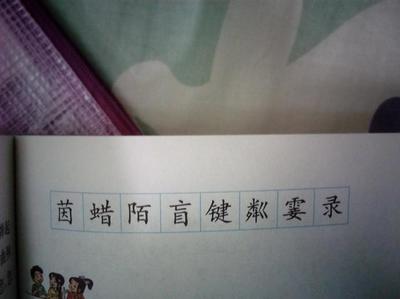 茵蜡陌盲键粼霎录